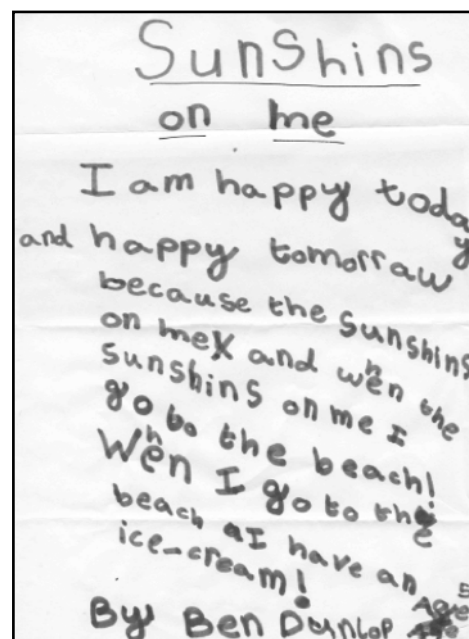 SunShins
on me
I am happy today
and happy tomorraw
because the sunshins
on me and when the
sunshins on me I
go to the beach!
When I go to the
beach I have an
ice-cream!
By Ben Dunlop Age 5